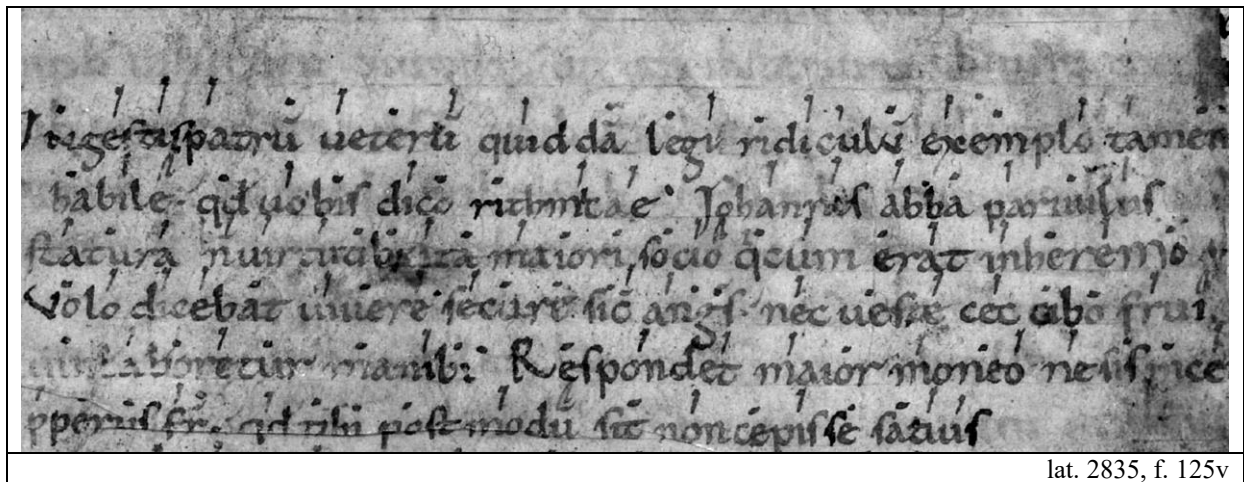 In gestis patrū ueterū quiddā legi ridiculū exemplo tamen
habile. qd uobis dico rithmicae Iohannes abba paruulus
statura n uirtutibus ita maiori socio qicum erat in heremo
Volo dicebat uiuere secure sic angls. nec ueste cec cibo frui,
laboretur manib; Respondet maior moneo ne sis ince
pperus fr. qd tibi postmodū sit non cepisse satius
lat. 2835, f. 125v